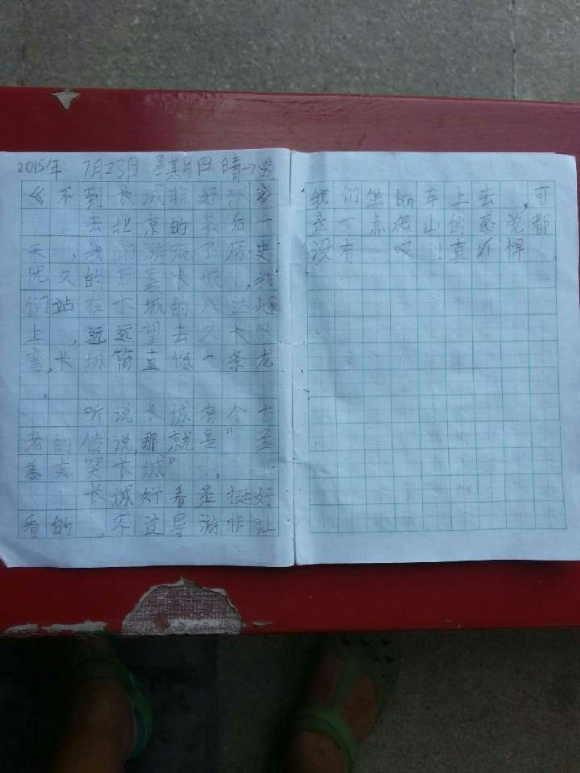 2015年 7月23日 星期四 晴→
《不到长城非好汉》
去北京的最后一
天,我们游玩了历史
悠久的万里长城,我
们站在长城的八达岭
上,远远望去又大
弯,长城简直像一条龙
。
听说长城有个古
老的传说,那就是"孟
姜女哭长城"。
长城好看是挺好
看的,不过导游非让
我们坐 车上去,可
是一点爬山的感觉都
没有 哎!真后悔